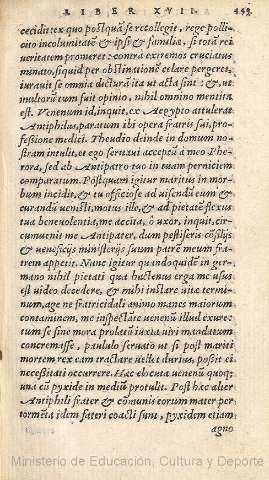 LIBER XVII. 443
cecidit: ex quo postquã se recollegit, rege polli-
cito incolumitatẽ & ipsi & familiæ, si totã rei
ueritatem promeret: contra extremos cruciatus
minato, siquid per obstinationẽ celare pergeret,
iurauit se omnia dicturã ita ut acta sint: &, ut
multorũ tum fuit opinio, nihil omnino mentita
est. Venenum id, inquit, ex Aegypto attulerat
Antiphilus, paratum ibi opera fratris sui, pro-
fessione medici. Theudio deinde in domum no-
stram intulit, et ego seruaui acceptũ à meo Phe-
rora, sed ab Antipatro tuo in tuam perniciem
comparatum. Postquam igitur maritus in mor-
bum incidit, & tu officiose ad uisendũ eum &
curandũ uenisti, motus ille, & ad pietatẽ flexus
tua beneuolentia, me accita, ô uxor, inquit, cir-
cumuenit me Antipater, dum pestiferis cõsilijs
& ueneficijs ministerijs suum patrẽ meum fra-
trem appetit. Nunc igitur quandoquidẽ in ger-
mano nihil pietati quã hactenus erga me usus
est uideo decedere, & mihi instare uitæ termi-
num, age ne fratricidali animo manes maiorum
contaminem, me inspectãte uenenũ illud exure:
tum se sine mora prolatũ iuxta uiri mandatum
concremasse, paululo seruato ut si post mariti
mortem rex eam tractare uellet durius, possit ei
necessitati occurrere. Hæc elocuta uenenũ quoq;
una cũ pyxide in mediũ protulit. Post hæc alter
Antiphili frater & cõmunis eorum mater per
tormẽta idem fateri coacti sunt, pyxidem etiam
agno
Ministerio de Educación, Cultura y Deporte